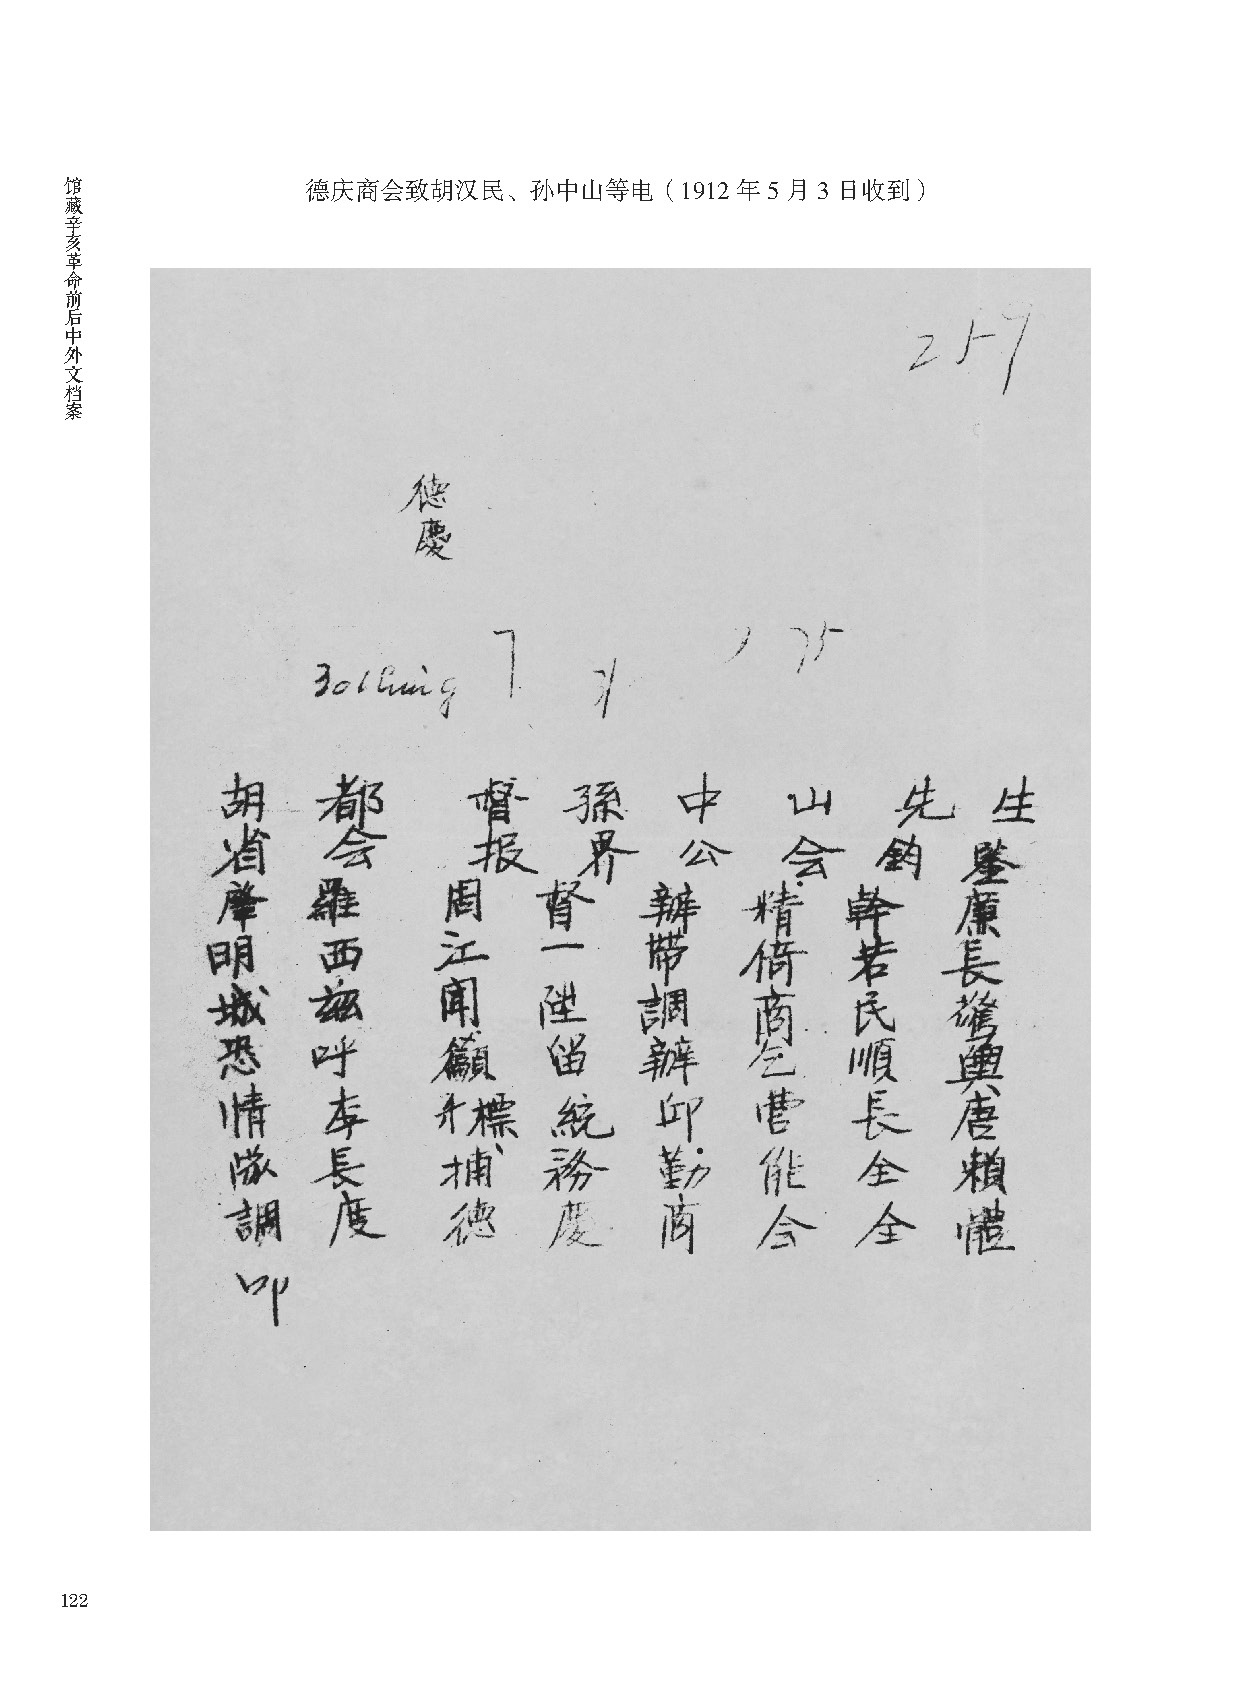 馆藏辛亥革命前后中外文档案
德庆商会致胡汉民、孙中山等电（1912 年 5 月 3 日收到）
257
德慶
胡都督孫中山先生
省会报界公会鈞鑒
肇羅周督辦精幹廉
明西江一帶倚若長
城兹聞陞調商民驚
恐呼籲留辦乞順輿
情李標統邱营長唐
隊長捕務勤能全賴
調度德慶商会全體
叩
122